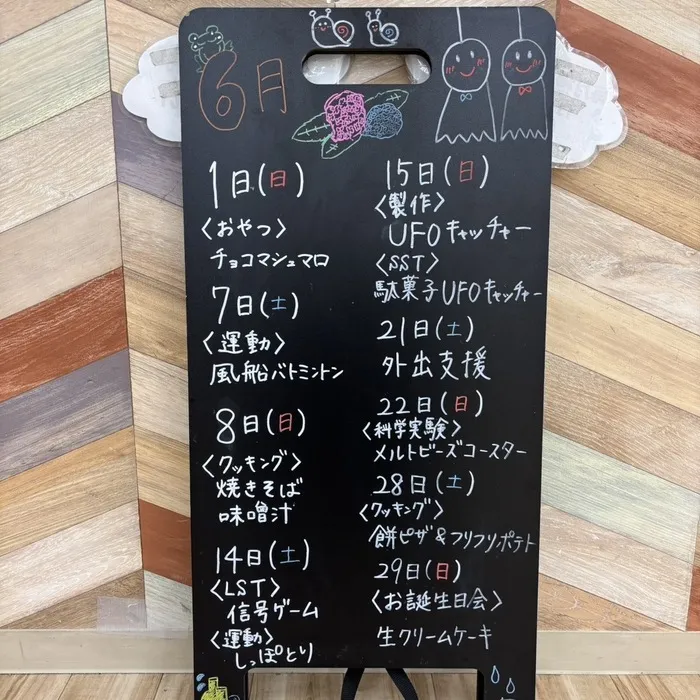 6月
1日(日)
〈おやつ〉
チョコマシュマロ
7日(土)
〈運動〉
風船バトミントン
8日(日)
〈クッキング〉
焼きそば
味噌汁
14日(土)
〈LST〉
信号ゲーム
〈運動〉
しっぽとり
15日(日)
〈製作〉
UFOキャッチャー
〈SST〉
駄菓子UFOキャッチャー
21日(土)
外出支援
22日(日)
〈科学実験〉
メルトビーズコースター
28日(土)
〈クッキング〉
餅ピザ&フリフリポテト
29日(日)
〈お誕生日会〉
生クリームケーキ